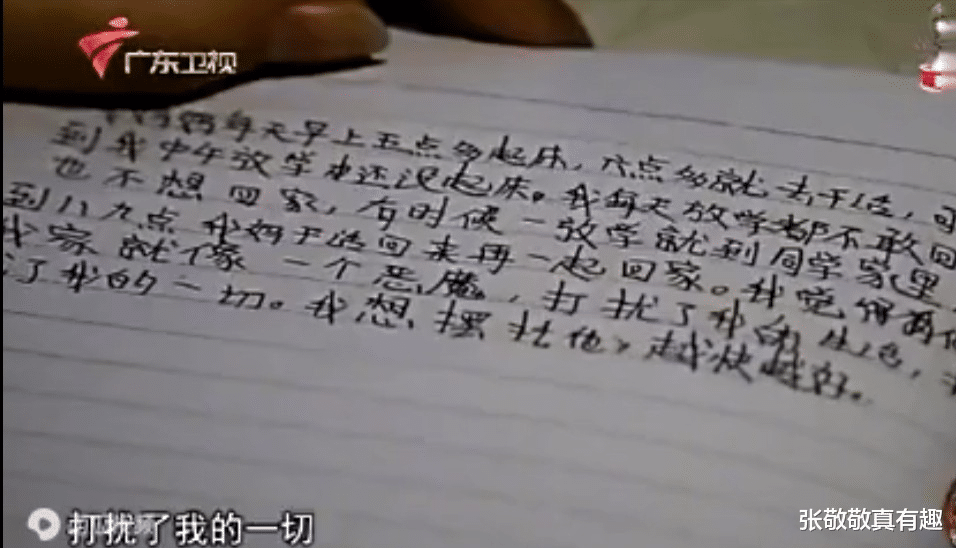 广东卫视
妈妈每天早上五点多起床，六点多就去干活，
到我中午放学他还没起床。我每天放学都不敢回
也不想回家，有时候一放学就到同学家里
到八九点我妈干活回来再一起回家。我觉得
我家就像一个恶魔，打扰了我的生活，
了我的一切。我想摆脱他，越快越好。
打扰了我的一切
张敬敬真有趣